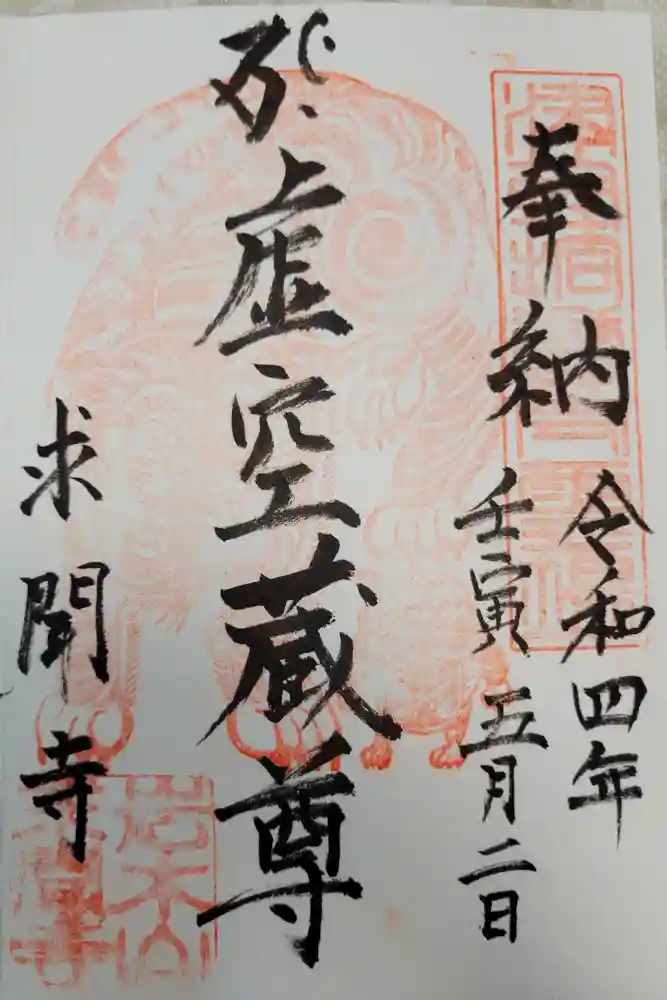 奉納
令和四年
壬寅 五月二日
虚空蔵尊
求聞寺